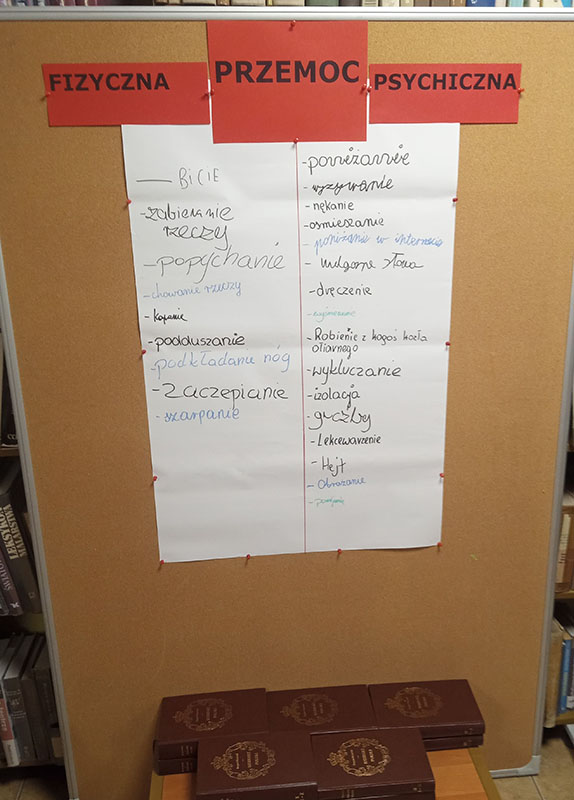 PRZEMOC
FIZYCZNA
PSYCHICZNA
— BICIE
- zabieranie
rzeczy
- popychanie
- chowanie rzeczy
- kopanie
- podduszanie
- podkładanie nóg
- Zaczepianie
- szarpanie
- poniżanie
- wyzywanie
- nękanie
- ośmieszanie
- poniżanie w internecie
- wulgarne słowa
- dręczenie
- wyśmiewanie
- Robienie z kogoś kozła
ofiarnego
- wykluczanie
- izolacja
- groźby
- Lekceważenie
- Hejt
- Obrażanie
LEKSYKON
MALARSTWA